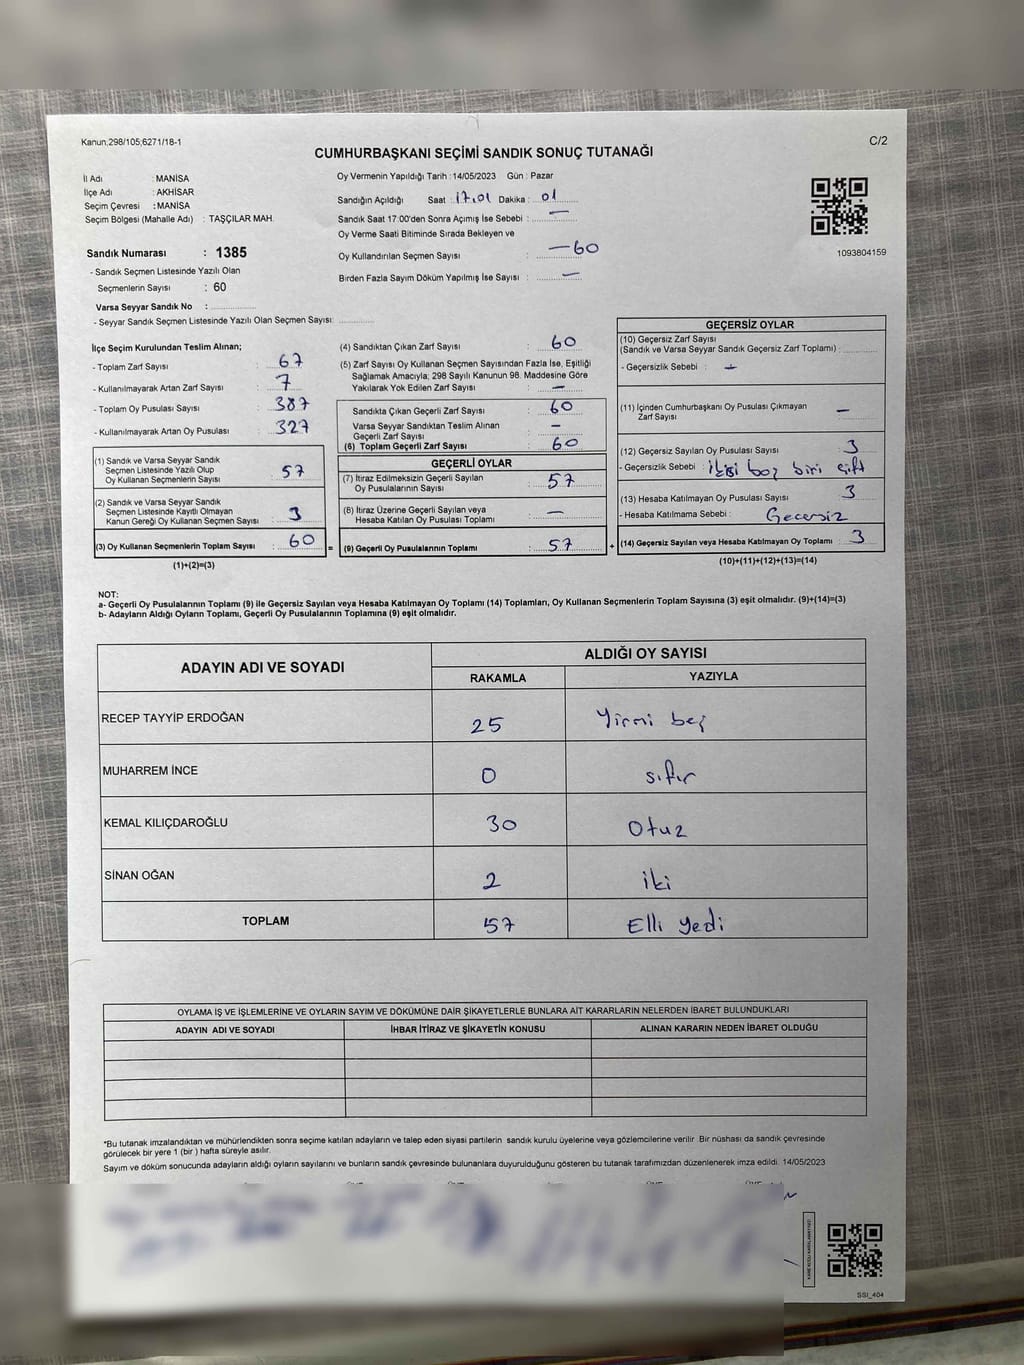 Kanun;298/105;6271/18-1
C/2
CUMHURBAŞKANI SEÇİMİ SANDIK SONUÇ TUTANAĞI
İl Adı : MANİSA
İlçe Adı : AKHİSAR
Seçim Çevresi : MANİSA
Seçim Bölgesi (Mahalle Adı) : TAŞÇILAR MAH.
Sandık Numarası : 1385
- Sandık Seçmen Listesinde Yazılı Olan
Seçmenlerin Sayısı : 60
Varsa Seyyar Sandık No :
- Seyyar Sandık Seçmen Listesinde Yazılı Olan Seçmen Sayısı:
Oy Vermenin Yapıldığı Tarih : 14/05/2023 Gün : Pazar
Sandığın Açıldığı Saat : 17.01 Dakika : 01
Sandık Saat 17:00'den Sonra Açımış İse Sebebi : —
Oy Verme Saati Bitiminde Sırada Bekleyen ve
Oy Kullandırılan Seçmen Sayısı : —60
Birden Fazla Sayım Döküm Yapılmış İse Sayısı : —
1093804159
İlçe Seçim Kurulundan Teslim Alınan;
- Toplam Zarf Sayısı : 67
- Kullanılmayarak Artan Zarf Sayısı : 7
- Toplam Oy Pusulası Sayısı : 387
- Kullanılmayarak Artan Oy Pusulası : 327
(1) Sandık ve Varsa Seyyar Sandık
Seçmen Listesinde Yazılı Olup
Oy Kullanan Seçmenlerin Sayısı : 57
(2) Sandık ve Varsa Seyyar Sandık
Seçmen Listesinde Kayıtlı Olmayan
Kanun Gereği Oy Kullanan Seçmen Sayısı : 3
(3) Oy Kullanan Seçmenlerin Toplam Sayısı : 60 =
(1)+(2)=(3)
(4) Sandıktan Çıkan Zarf Sayısı : 60
(5) Zarf Sayısı Oy Kullanan Seçmen Sayısından Fazla İse, Eşitliği
Sağlamak Amacıyla; 298 Sayılı Kanunun 98. Maddesine Göre
Yakılarak Yok Edilen Zarf Sayısı : —
Sandıkta Çıkan Geçerli Zarf Sayısı : 60
Varsa Seyyar Sandıktan Teslim Alınan
Geçerli Zarf Sayısı : —
(6) Toplam Geçerli Zarf Sayısı : 60
GEÇERLİ OYLAR
(7) İtiraz Edilmeksizin Geçerli Sayılan
Oy Pusulalarının Sayısı : 57
(8) İtiraz Üzerine Geçerli Sayılan veya
Hesaba Katılan Oy Pusulası Toplamı : —
(9) Geçerli Oy Pusulalarının Toplamı : 57 +
GEÇERSİZ OYLAR
(10) Geçersiz Zarf Sayısı
(Sandık ve Varsa Seyyar Sandık Geçersiz Zarf Toplamı) :
- Geçersizlik Sebebi : —
(11) İçinden Cumhurbaşkanı Oy Pusulası Çıkmayan
Zarf Sayısı : —
(12) Geçersiz Sayılan Oy Pusulası Sayısı : 3
- Geçersizlik Sebebi : ikisi boş biri çift
(13) Hesaba Katılmayan Oy Pusulası Sayısı : 3
- Hesaba Katılmama Sebebi : Gecersiz
(14) Geçersiz Sayılan veya Hesaba Katılmayan Oy Toplamı : 3
(10)+(11)+(12)+(13)=(14)
NOT:
a- Geçerli Oy Pusulalarının Toplamı (9) ile Geçersiz Sayılan veya Hesaba Katılmayan Oy Toplamı (14) Toplamları, Oy Kullanan Seçmenlerin Toplam Sayısına (3) eşit olmalıdır. (9)+(14)=(3)
b- Adayların Aldığı Oyların Toplamı, Geçerli Oy Pusulalarının Toplamına (9) eşit olmalıdır.
ADAYIN ADI VE SOYADI ALDIĞI OY SAYISI
RAKAMLA YAZIYLA
RECEP TAYYİP ERDOĞAN 25 Yirmi beş
MUHARREM İNCE 0 sıfır
KEMAL KILIÇDAROĞLU 30 Otuz
SİNAN OĞAN 2 iki
TOPLAM 57 Elli yedi
OYLAMA İŞ VE İŞLEMLERİNE VE OYLARIN SAYIM VE DÖKÜMÜNE DAİR ŞİKAYETLERLE BUNLARA AİT KARARLARIN NELERDEN İBARET BULUNDUKLARI
ADAYIN ADI VE SOYADI İHBAR İTİRAZ VE ŞİKAYETİN KONUSU ALINAN KARARIN NEDEN İBARET OLDUĞU
*Bu tutanak imzalandıktan ve mühürlendikten sonra seçime katılan adayların ve talep eden siyasi partilerin sandık kurulu üyelerine veya gözlemcilerine verilir. Bir nüshası da sandık çevresinde
görülecek bir yere 1 (bir ) hafta süreyle asılır.
Sayım ve döküm sonucunda adayların aldığı oyların sayılarını ve bunların sandık çevresinde bulunanlara duyurulduğunu gösteren bu tutanak tarafımızdan düzenlenerek imza edildi. 14/05/2023
SSI_404